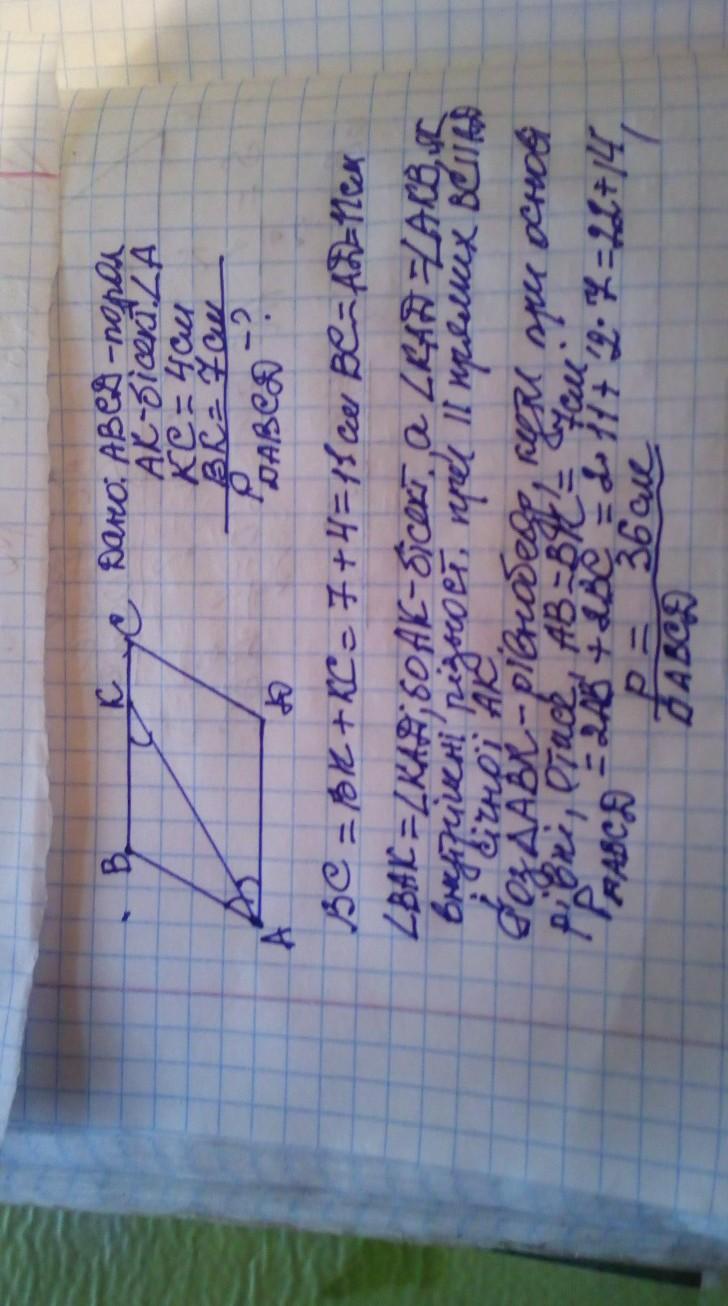 B K C
A D
Дано: ABCD - парал
AK - бісект. ∠A
KC = 4 см
BK = 7 см
P▱ABCD - ?
BC = BK + KC = 7 + 4 = 11 см BC = AD = 11 см
∠BAK = ∠KAD, бо AK - бісект. а ∠KAD = ∠AKB, як
внутрішні різност. при || прямих BC || AD
і січної AK
ΔABK - рівнобедр, кути при основі
рівні, отже, AB = BK = 7 см.
P▱ABCD = 2AB + 2BC = 2·11 + 2·7 = 22 + 14
P▱ABCD = 36 см